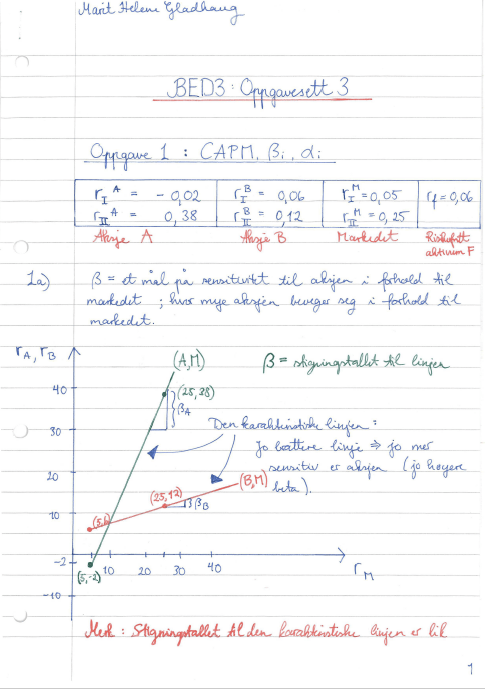 Marit Helene Gladhaug
BED3: Oppgavesett 3
Oppgave 1 : CAPM, βi, αi
r_I^A = -0,02 r_I^B = 0,06 r_I^M = 0,05 rf = 0,06
r_II^A = 0,38 r_II^B = 0,12 r_II^M = 0,25
Aksje A Aksje B Markedet Risikofritt
aktivum F
1a) β = et mål på sensitivitet til aksjen i forhold til
markedet ; hvor mye aksjen beveger seg i forhold til
markedet.
rA, rB (A,M) β = stigningstallet til linjen
40 (25,38)
βA
30 Den karakteristiske linjen :
Jo brattere linje ⇒ jo mer
20 sensitiv er aksjen (jo høyere
beta).
(25,12) (B,M)
10 (5,6) βB
-2 10 20 30 40 rM
(5,-2)
-10
Merk : Stigningstallet til den karakteristiske linjen er lik
1